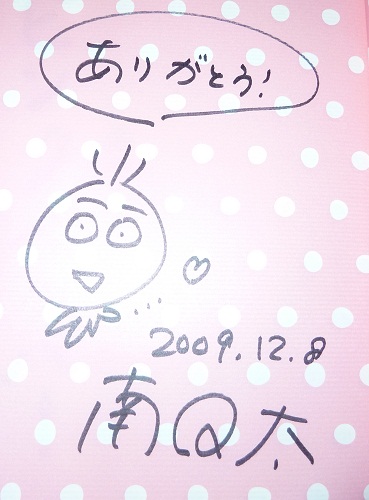 ありがとう!
2009.12.8
南Q太